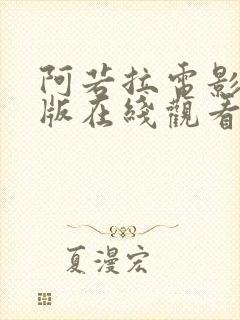 阿若拉电影
版在綫觀看
夏漫宏